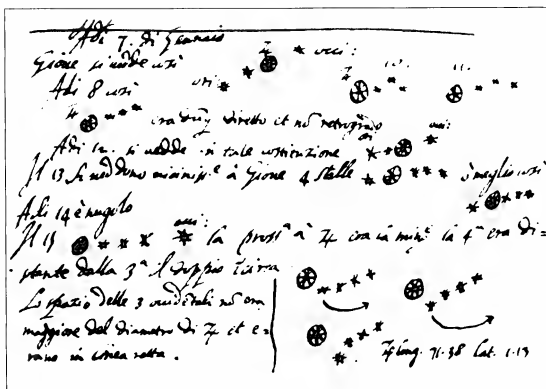 Adi 7. di Gennaio
Gione si vedde così ori: occi:
Adi 8 così 10. 11.
era dūq diretto et nō retrogrado
Adi 12. si vedde in tale costitutione ori occi:
Il 13 si veddono vicinissᵉ à Gione 4 stelle ò meglio così
Adi 14 è nugolo
Il 15 occi: la prossᵃ à ♃ era la minʳ la 4ᵃ era di=
stante dalla 3ᵃ il doppio circa
Lo spazio delle 3 occidentali nō era
maggiore del diametro di ♃ et e-
rano in linea retta.
♃ long. 71.38 lat. 1.13